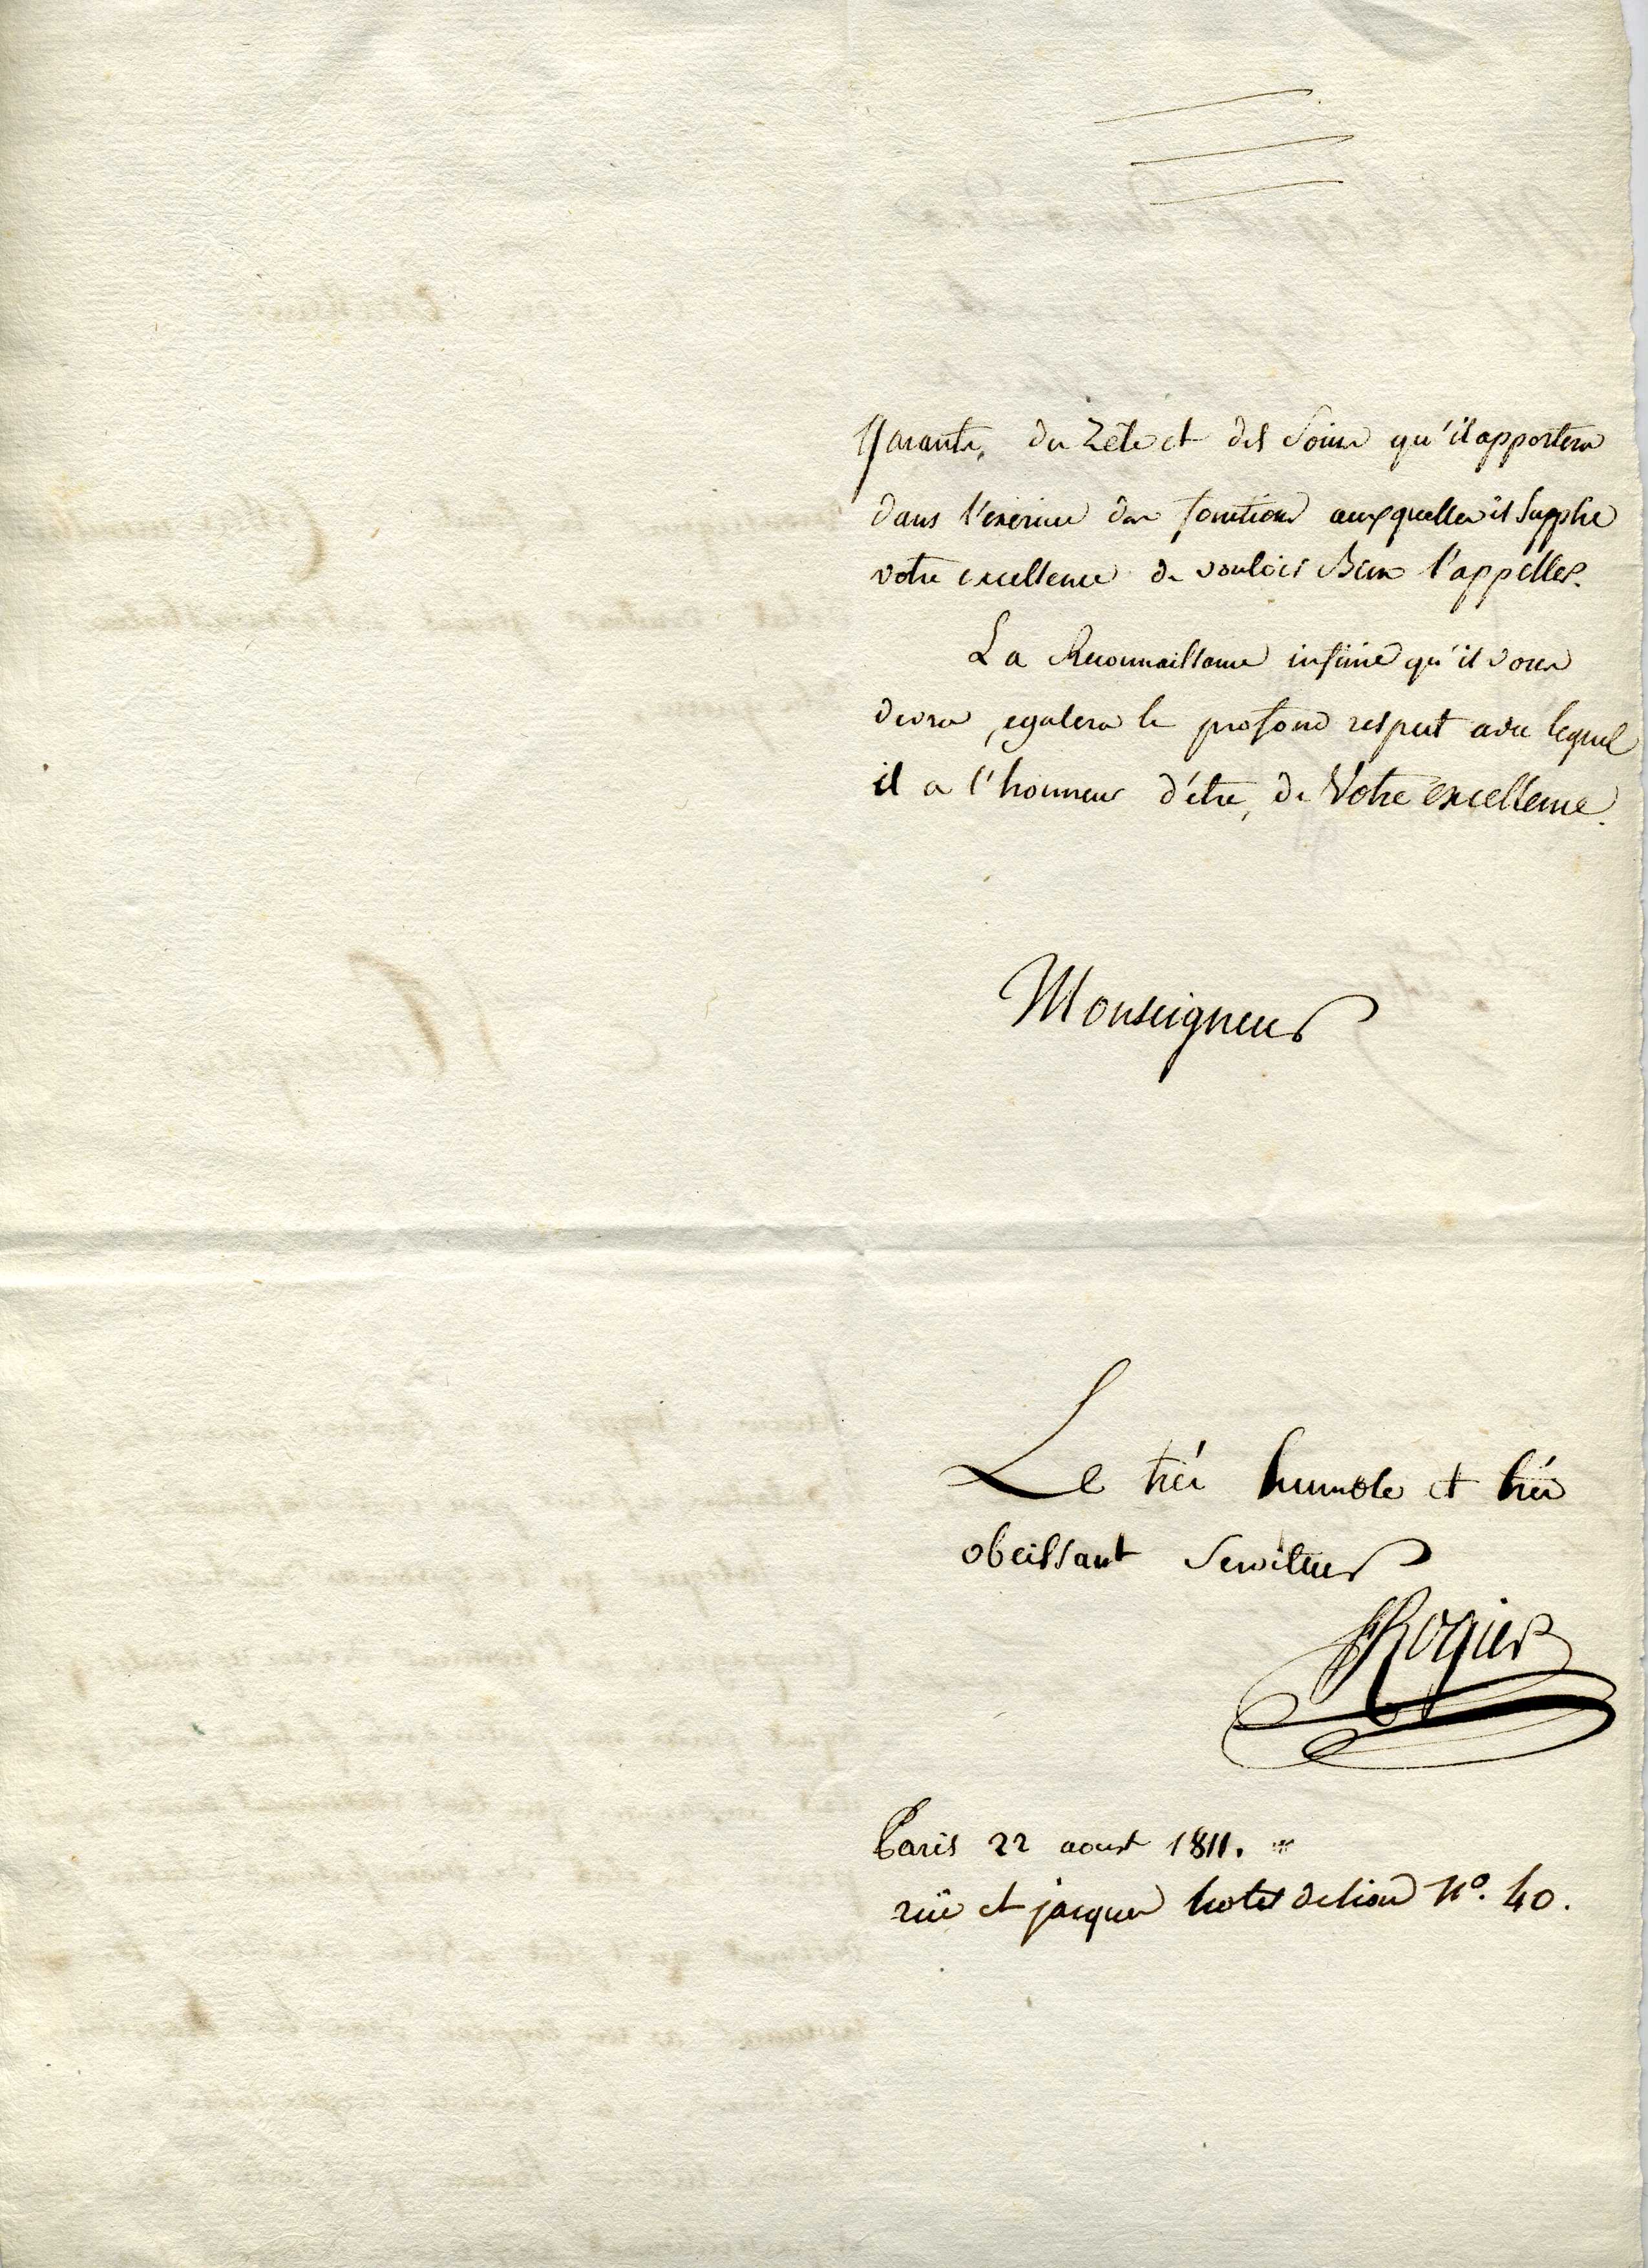 Garants, du Zéle et des Soins qu'il apportera
dans l'exercice des fonctions auxquelles il Supplie
votre excellence de vouloir Bien l'appeller.
La Reconnaissance infinie qu'il vous
devra, egalera le profond respect avec lequel
il a l'honneur d'étre, de Votre excellence.
Monseigneur
Le trés humble et trés
obeissant Serviteur
Rogier
Paris 22 aoust 1811.
rüe st jacques hotel de lion N°. 40.